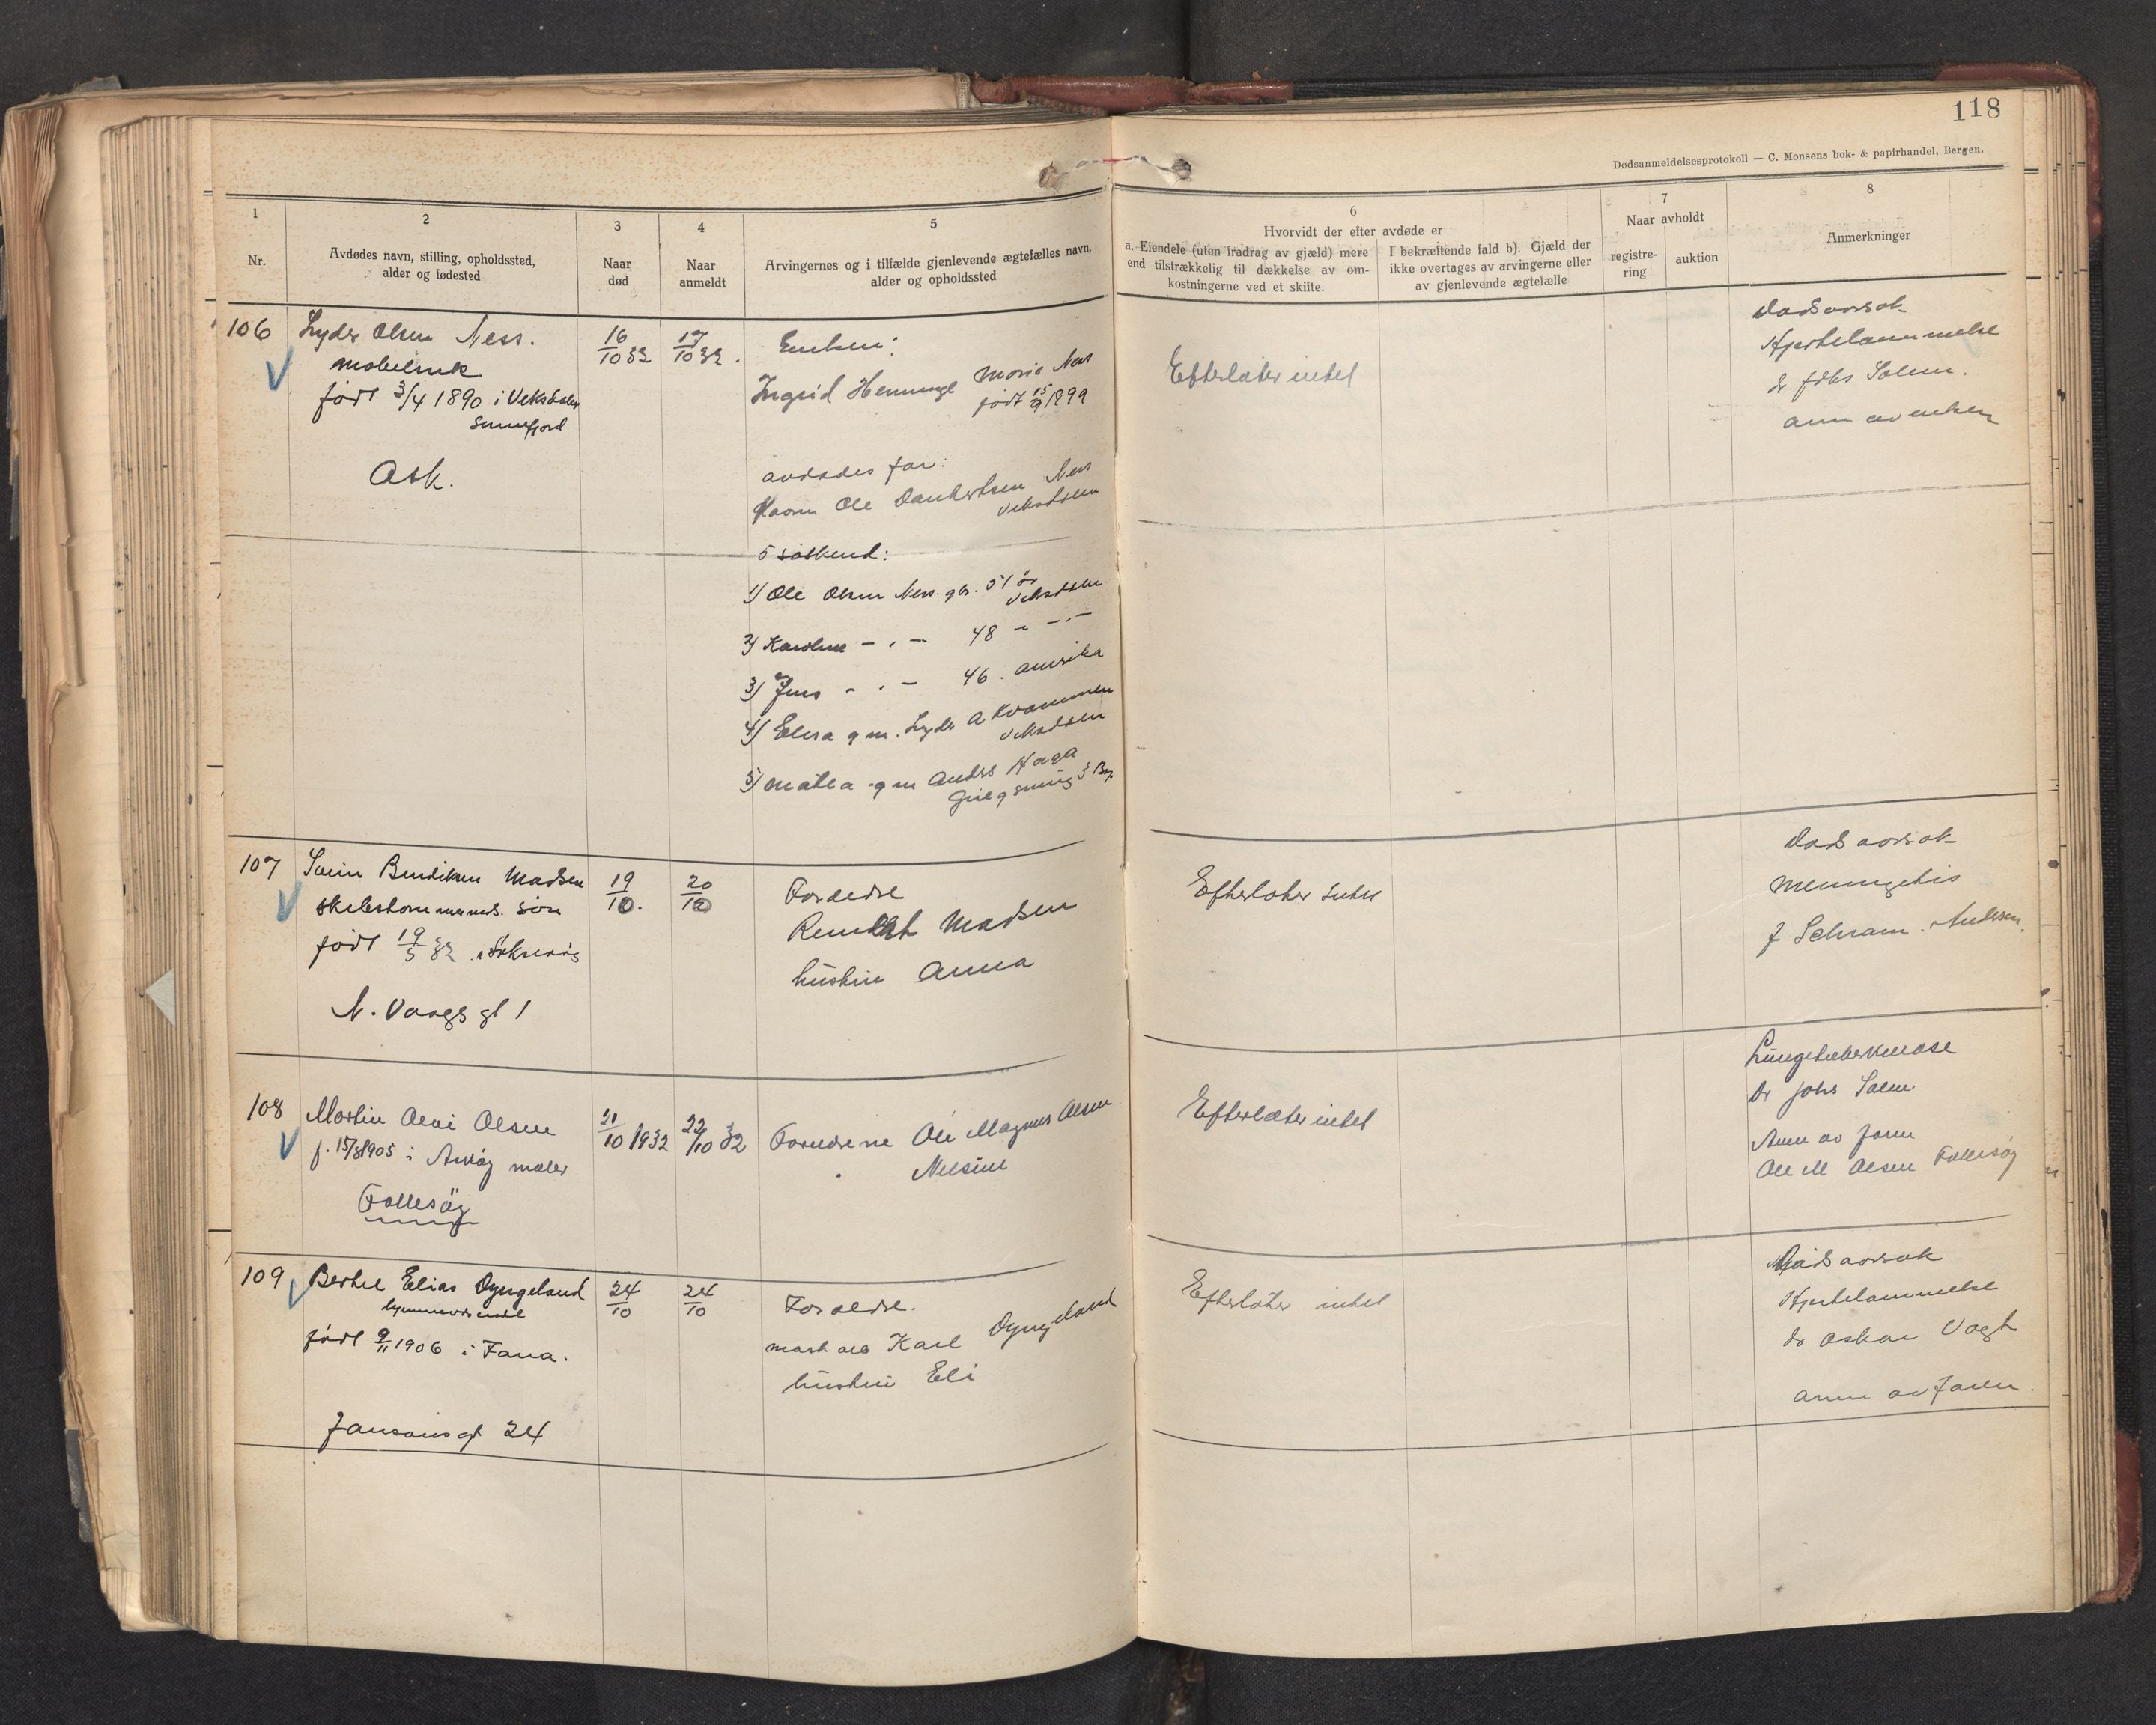 118
Dødsanmeldelsesprotokoll — C. Monsens bok- & papirhandel, Bergen.
1
Nr.
2
Avdødes navn, stilling, opholdssted,
alder og fødested
3
Naar
død
4
Naar
anmeldt
5
Arvingernes og i tilfælde gjenlevende ægtefælles navn,
alder og opholdssted
6
Hvorvidt der efter avdøde er
a. Eiendele (uten fradrag av gjæld) mere
end tilstrækkelig til dækkelse av om-
kostningerne ved et skifte.
I bekræftende fald b). Gjæld der
ikke overtages av arvingerne eller
av gjenlevende ægtefælle
7
Naar avholdt
registre-
ring
auktion
8
Anmerkninger
106
Lyder Olsen Ness.
møbelsnk.
født 3/4 1890 i Veksdalen
Sunnfjord
Ask.
16/10 32
17/10 32.
Enken:
Ingrid Marie Nes
født 15/9 1899
avdødes far:
Ole Dankertsen Nes
Veksdalen
5 søskend:
1) Ole Olsen Ness. gbr. 51 år
Veksdalen
2) Karoline - " - 48 - - " -
3) Jens - " - 46. Amerika
4) Elisa g m. Lyder A Kvammen
Veksdalen
5) Matea g m Anders Haga
Efterlater intet
Dødsårsak
Hjertelammelse
dr Johs Solem.
anm av enken
107
Svein Bendiksen Madsen
søn
født 19/5 32
N. Vaagsgt 1
19/10.
20/10
Foreldre
Madsen
hustru Anna
Efterlater intet
Dødsårsak
Meningitis
J Schram. Andersen.
108
Martin Olai Olsen
f. 15/8 1905 i Askøy maler
Follesøy
21/10 1932
22/10 32
Foreldrene Ole Magnus Olsen
Nilsine
Efterlater intet
Lungetuberkulose
Dr Johs Solem
Anm av faren
Ole M Olsen Follesøy
109
Bertel Elias Dyngeland
født 9/11 1906 i Fana.
Jansonsgt 24
24/10
24/10
Foreldre.
Karl Dyngeland
hustru Eli
Efterlater intet
Dødsårsak
Hjertelammelse
dr Oskar Vogt
anm av faren.